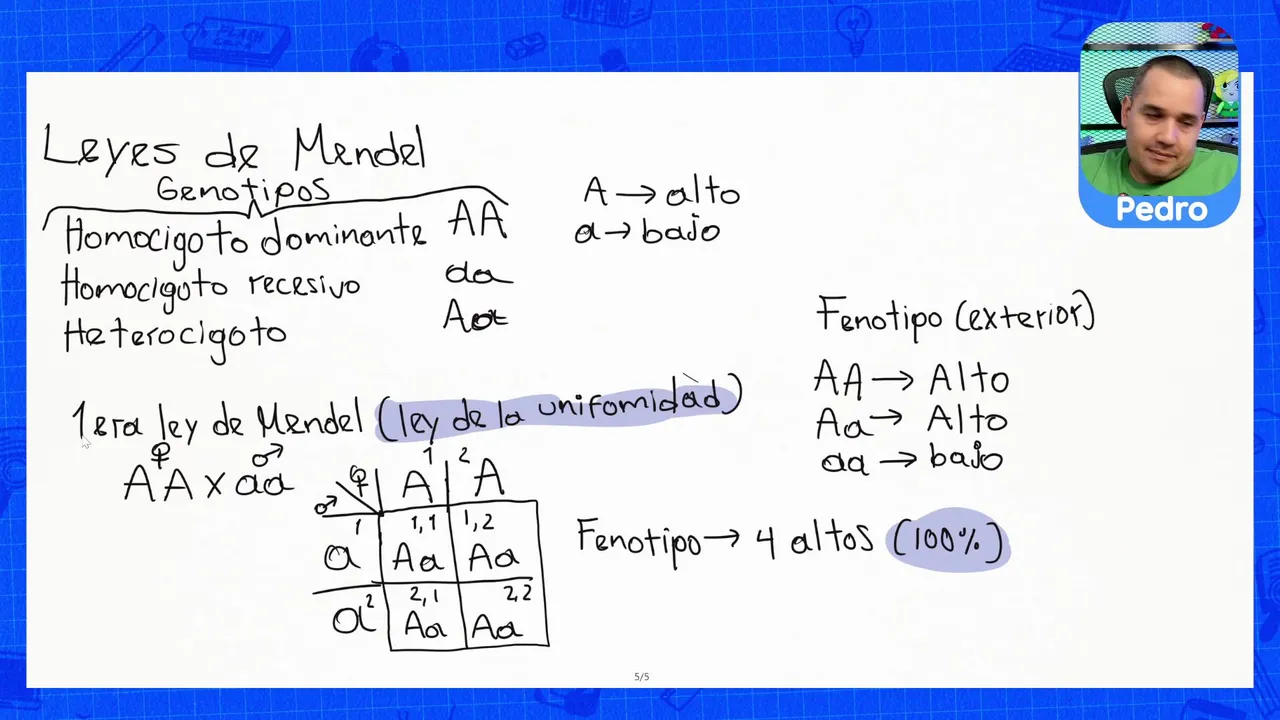 Leyes de Mendel
Genotipos
Homocigoto dominante AA
Homocigoto recesivo aa
Heterocigoto Aa
A → alto
a → bajo
Pedro
Fenotipo (exterior)
AA → Alto
Aa → Alto
aa → bajo
1era ley de Mendel (ley de la unifomidad)
♀ ♂
AA x aa
♀ 1 2
♂ A A
1 1,1 1,2
a Aa Aa
2 2,1 2,2
a Aa Aa
Fenotipo → 4 altos (100%)
5/5